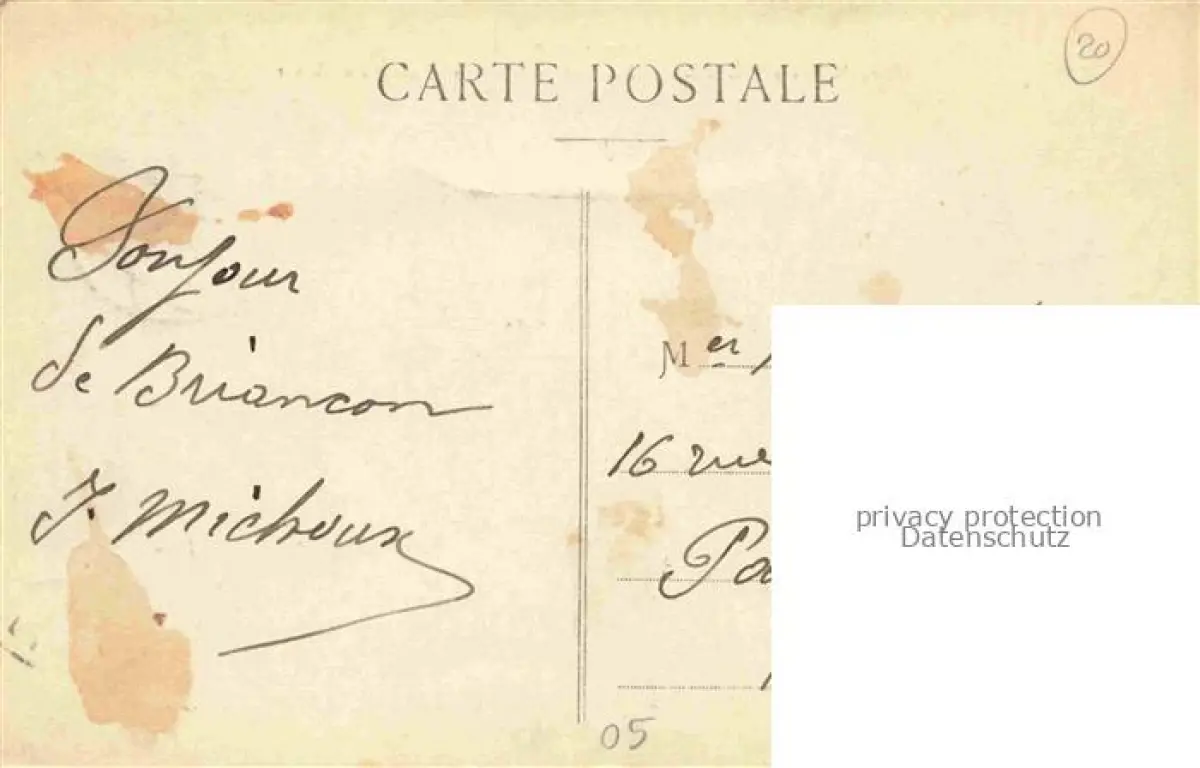 CARTE POSTALE
20
Bonjour
de Briancon
J. Michoux
Mer
16 rue
Pa
05
privacy protection
Datenschutz